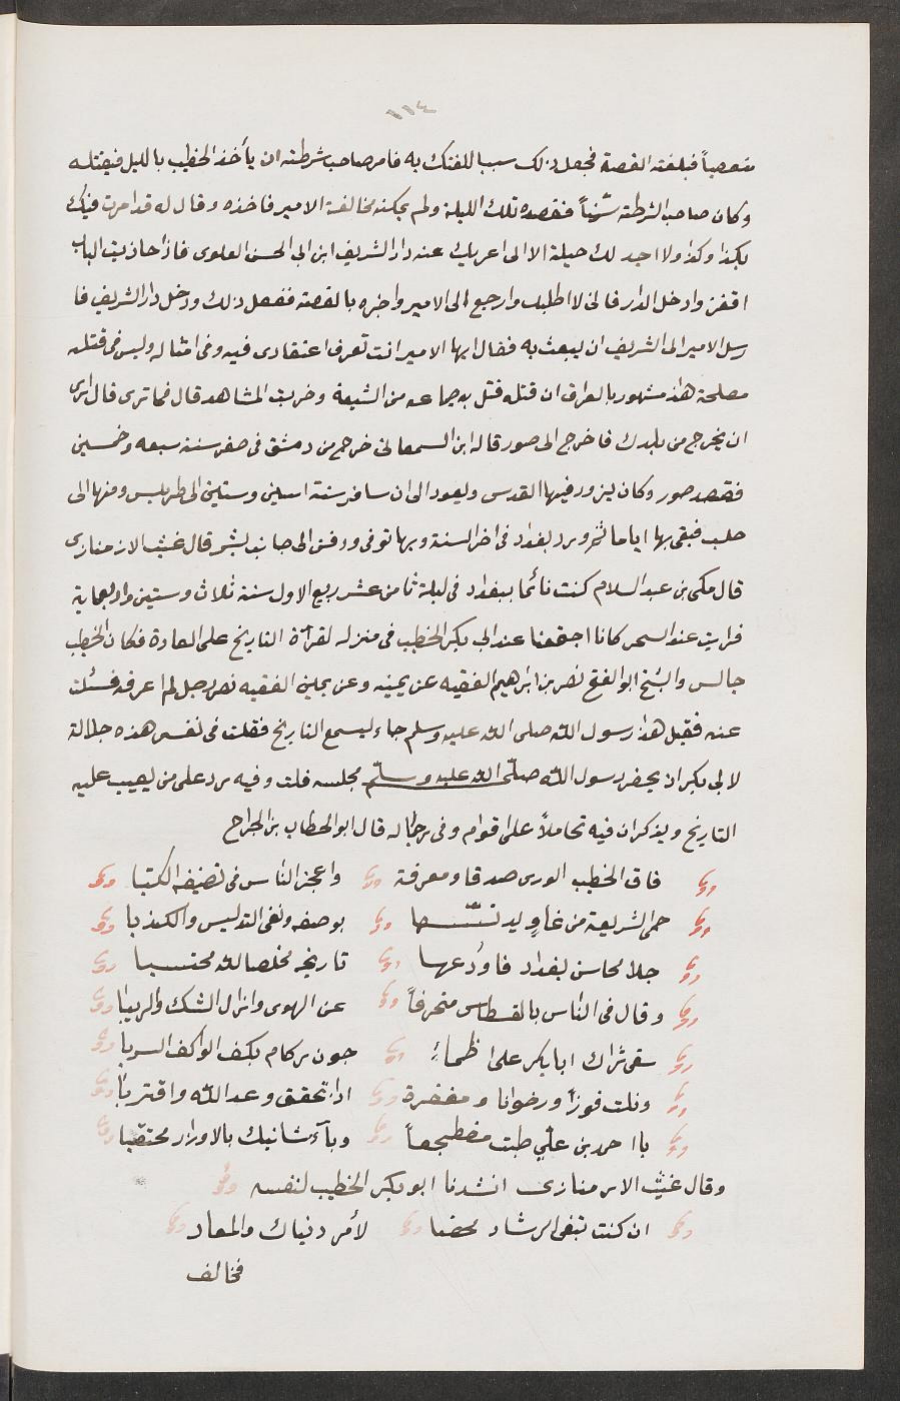 ١١٤
متعصباً فبلغته القصة فجعل ذلك سببا للفتك به فامر صاحب شرطته ان يأخذ الخطيب بالليل فيقتله
وكان صاحب الشرطة سُنياً فقصده تلك الليلة ولم يمكنه مخالفة الامير فاخذه وقال له قد امرت فيك
بكذا وكذا ولا اجد لك حيلة الا انى اعبر بك عند دار الشريف ابن ابى الحسن العلوى فاذا حاذيت الباب
اقفز وادخل الدار فانى لا اطلبك وارجع الى الامير واخبره بالقصة ففعل ذلك ودخل دار الشريف فا
رسل الامير الى الشريف ان يبعث به فقال ايها الامير انت تعرف اعتقادى فيه وفى امثاله وليس فى قتله
مصلحة هذا مشهور بالعراق ان قتله قتل به جماعه من الشيعة وخربت المشاهد قال فما ترى قال ارى
ان يخرج من بلدك فاخرج الى صور قاله ابن السمعانى خرج من دمشق فى صفر سنة سبعه وخمسين
فقصد صور وكان يزور فيها القدس ويعود الى ان سافر سنة اثنين وستين الى طرابلس ومنها الى
حلب فبقى بها اياما ثم ورد بغداد فى اخر السنة وبها توفى ودفن الى جانب بشر قال غيث الارمنازى
قال مكى بن عبد السلام كنت نائما ببغداد فى ليلة ثامن عشر ربيع الاول سنة ثلاث وستين واربعماية
فرايت عند السحر كانا اجتمعنا عند ابى بكر الخطيب فى منزله لقرآة التاريخ على العادة فكان الخطيب
جالس والشيخ ابو الفتح نصر بن ابرهيم الفقيه عن يمينه وعن يمين الفقيه نصر رجل لم اعرفه فسئلت
عنه فقيل هذا رسول الله صلى الله عليه وسلم جاء ليسمع التاريخ فقلت فى نفسى هذه جلالة
لابى بكر ان يحضر رسول الله صلّى الله عليه وسلّم مجلسه قلت وفيه رد على من يعيب عليه
التاريخ ويذكر ان فيه تحاملاً على اقوام وفى رجاله قال ابو الخطاب بن الجراح
فاق الخطيب الورى صدقا ومعرفة واعجز الناس فى تصنيفه الكتبا
حمى الشريعة من غاوٍ يدنسها بوصفه ونفى التدليس والكذبا
جلا محاسن بغداد فاودعها تاريخه مخلصا لله محتسبا
وقال فى الناس بالقسطاس منحرفاً عن الهوى وازال الشك والريبا
سقى ثراك ابا بكر على ظماءٍ جون ركام بكف الواكف السربا
ونلت فوزاً ورضوانا ومغفرة اذا تحقق وعد الله واقتربا
يا احمد بن علىّ طبت مضطجعاً وبآء شانيك بالاوزار محتقبا
وقال غيث الارمنازى انشدنا ابو بكر الخطيب لنفسه
ان كنت تبغى الرشاد محضا لأمر دنياك والمعاد
فخالف